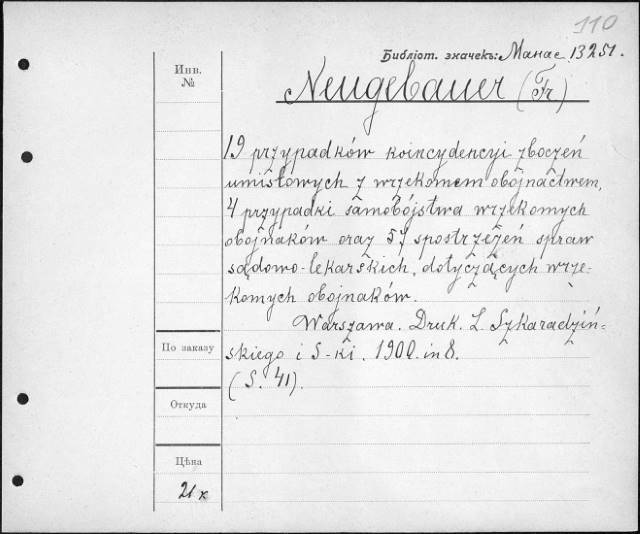 110
Библіот. значекъ: Манас. 13251.
Инв.
№
Neugebauer (Fr)
19 przypadków koincydencyi zboczeń
umisłowych z wrzekomem obojnactwem,
4 przypadki samobójstwa wrzekomych
obojnaków oraz 57 spostrzeżeń spraw
sądowo-lekarskich, dotyczących wrze-
komych obojnaków.
Warszawa. Druk. L. Szkaradziń-
По заказу
skiego i S-ki. 1900. in 8.
(S. 41).
Откуда
Цѣна
21 к